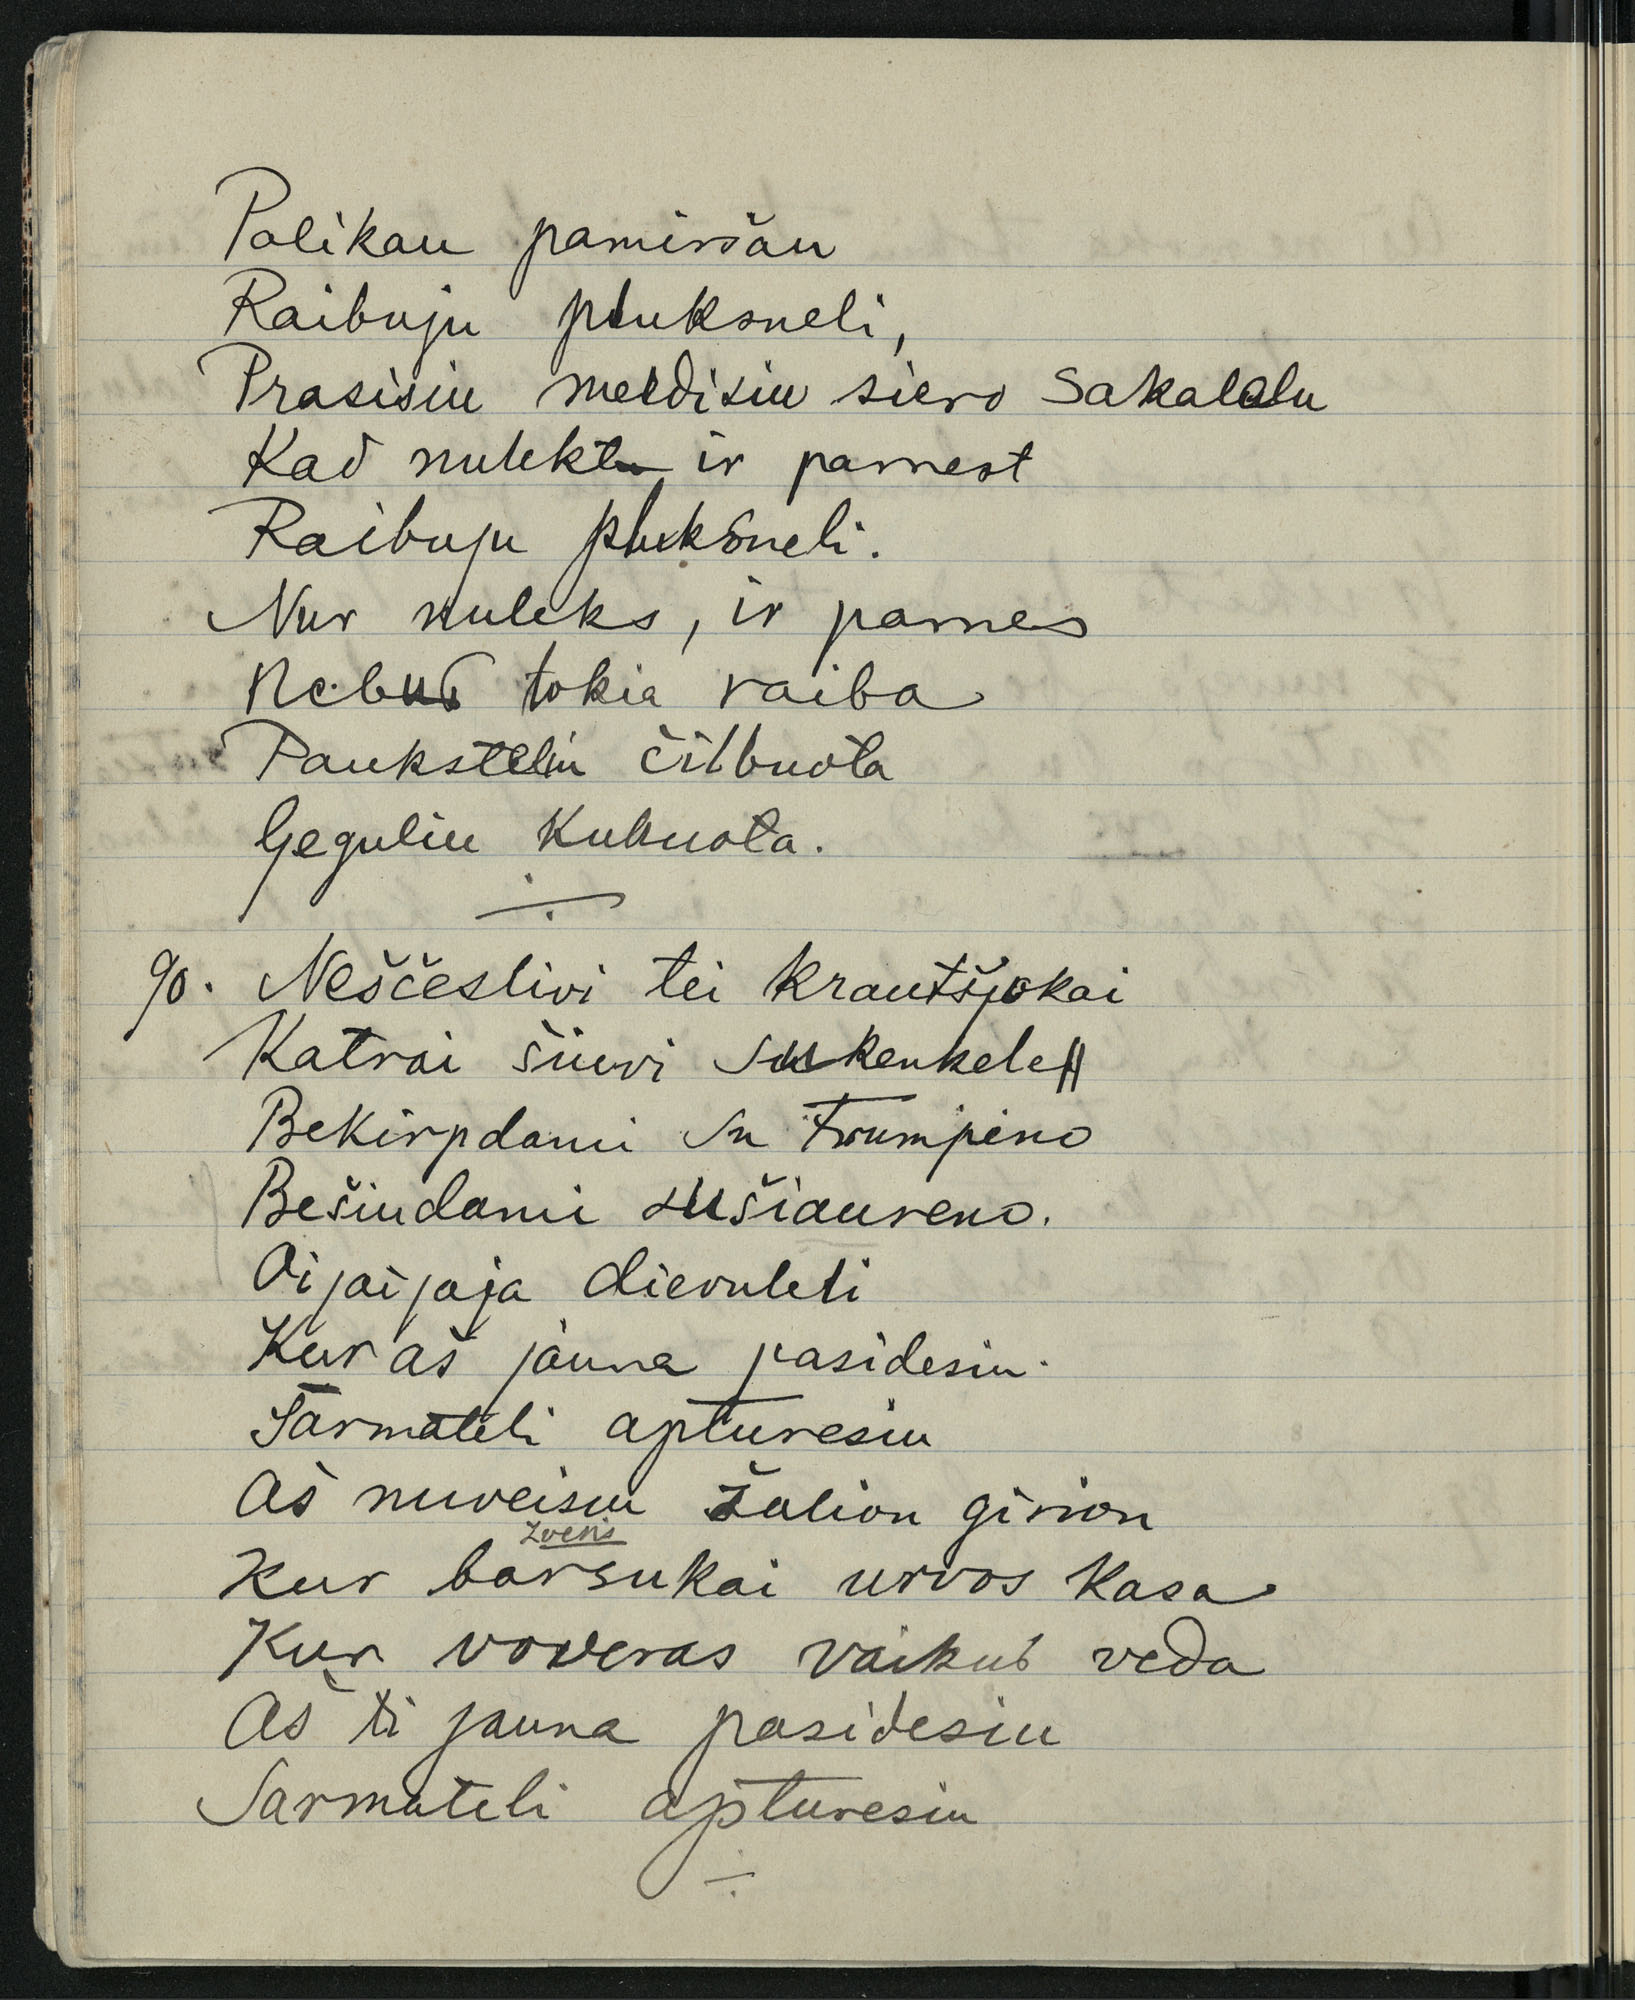 Palikau pamiršau
Raibuju pluksneli,
Prasisiu meldisiu siero Sakalelu
Kad nulekt ir parnest
Raibuju pluksneli.
Nur nuleks, ir parnes
Nebus tokia raiba
Pauksteliu čilbuota
Geguliu Kukuota.
90. Neščeslivi tei krautšjokai
Katrai šiuvi sukenkele
Bekirpdami su trumpino
Bešiudami sušiaureno.
Oi jai jaja dievuleli
Kur aš jauna pasidesiu.
Sarmateli apturesiu
Aš nuveisiu žalion girion
zveris
Kur barsukai urvos kasa
Kur voveras vaikus veda
Aš ti jauna pasidesiu
Sarmateli apturesiu